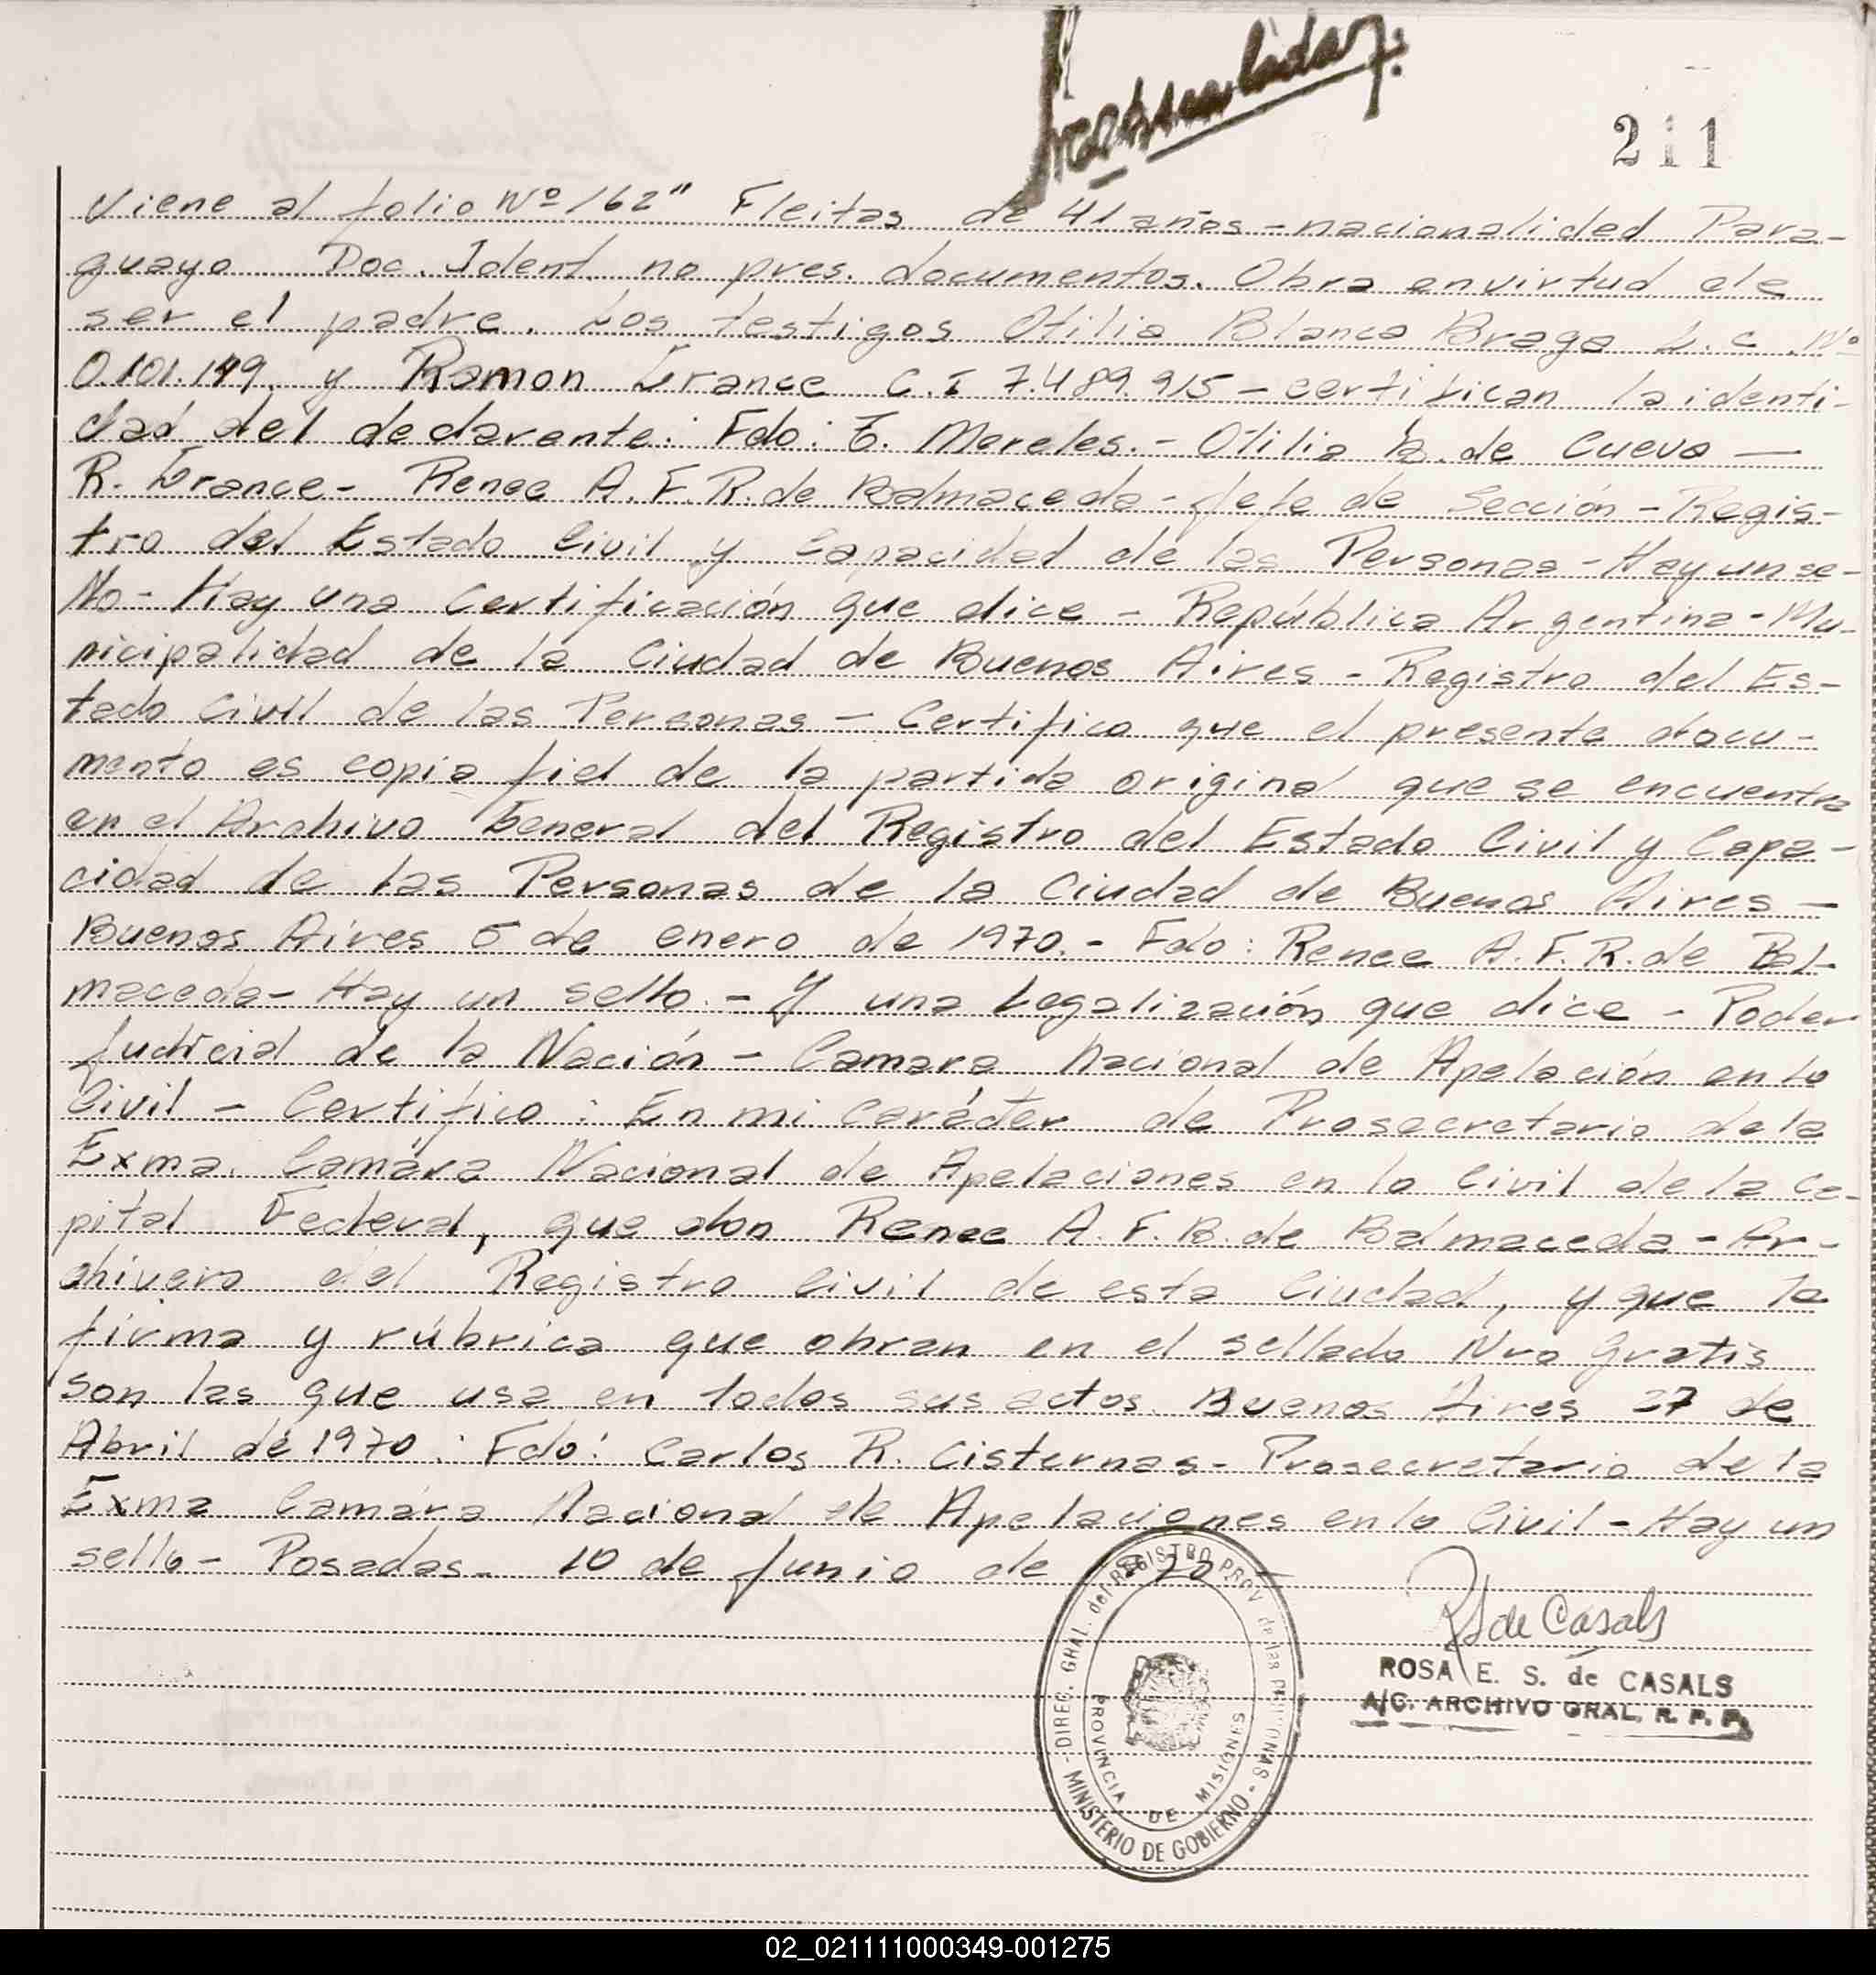 211
Viene al folio Nº 162" Fleitas de 41 años - nacionalidad Para-
guayo Doc. Ident. no pres. documentos. Obra envirtud de
ser el padre. Los testigos Otilia Blanca Braga L.C. Nº
0.101.149. y Ramon Grance C.I 7.489.915 - certifican la identi-
dad del declarante: Fdo: E. Mereles. - Otilia B. de Cueva —
R. Grance - Renee A. F. R. de Balmaceda - Jefe de Sección - Regis-
tro del Estado Civil y Capacidad de las Personas - Hay un se-
llo - Hay una Certificación que dice - República Argentina - Mu-
nicipalidad de la Ciudad de Buenos Aires - Registro del Es-
tado Civil de las Personas - Certifico que el presente docu-
mento es copia fiel de la partida original que se encuentra
en el Archivo General del Registro del Estado Civil y Capa-
cidad de las Personas de la Ciudad de Buenos Aires -
Buenos Aires 6 de enero de 1970. - Fdo: Renee A. F. R. de Bal-
maceda - Hay un sello. - Y una Legalización que dice - Poder
Judicial de la Nación - Camara Nacional de Apelación en lo
Civil - Certifico: En mi carácter de Prosecretario de la
Exma. Camára Nacional de Apelaciones en lo Civil de la Ca-
pital Federal, que don Renee A. F. R. de Balmaceda - Ar-
chivero del Registro Civil de esta Ciudad, y que la
firma y rúbrica que obran en el sellado Nro Gratis
son las que usa en todos sus actos. Buenos Aires 27 de
Abril de 1970: Fdo: Carlos R. Cisternas - Prosecretario de la
Exma Camára Nacional de Apelaciones en lo Civil - Hay un
sello - Posadas - 10 de Junio de
DIREC. GRAL. del REGISTRO PROV. de las PERSONAS - MINISTERIO DE GOBIERNO -
PROVINCIA DE MISIONES
RS de Casals
ROSA E. S. de CASALS
A/C. ARCHIVO GRAL. R. P. P.
02_021111000349-001275